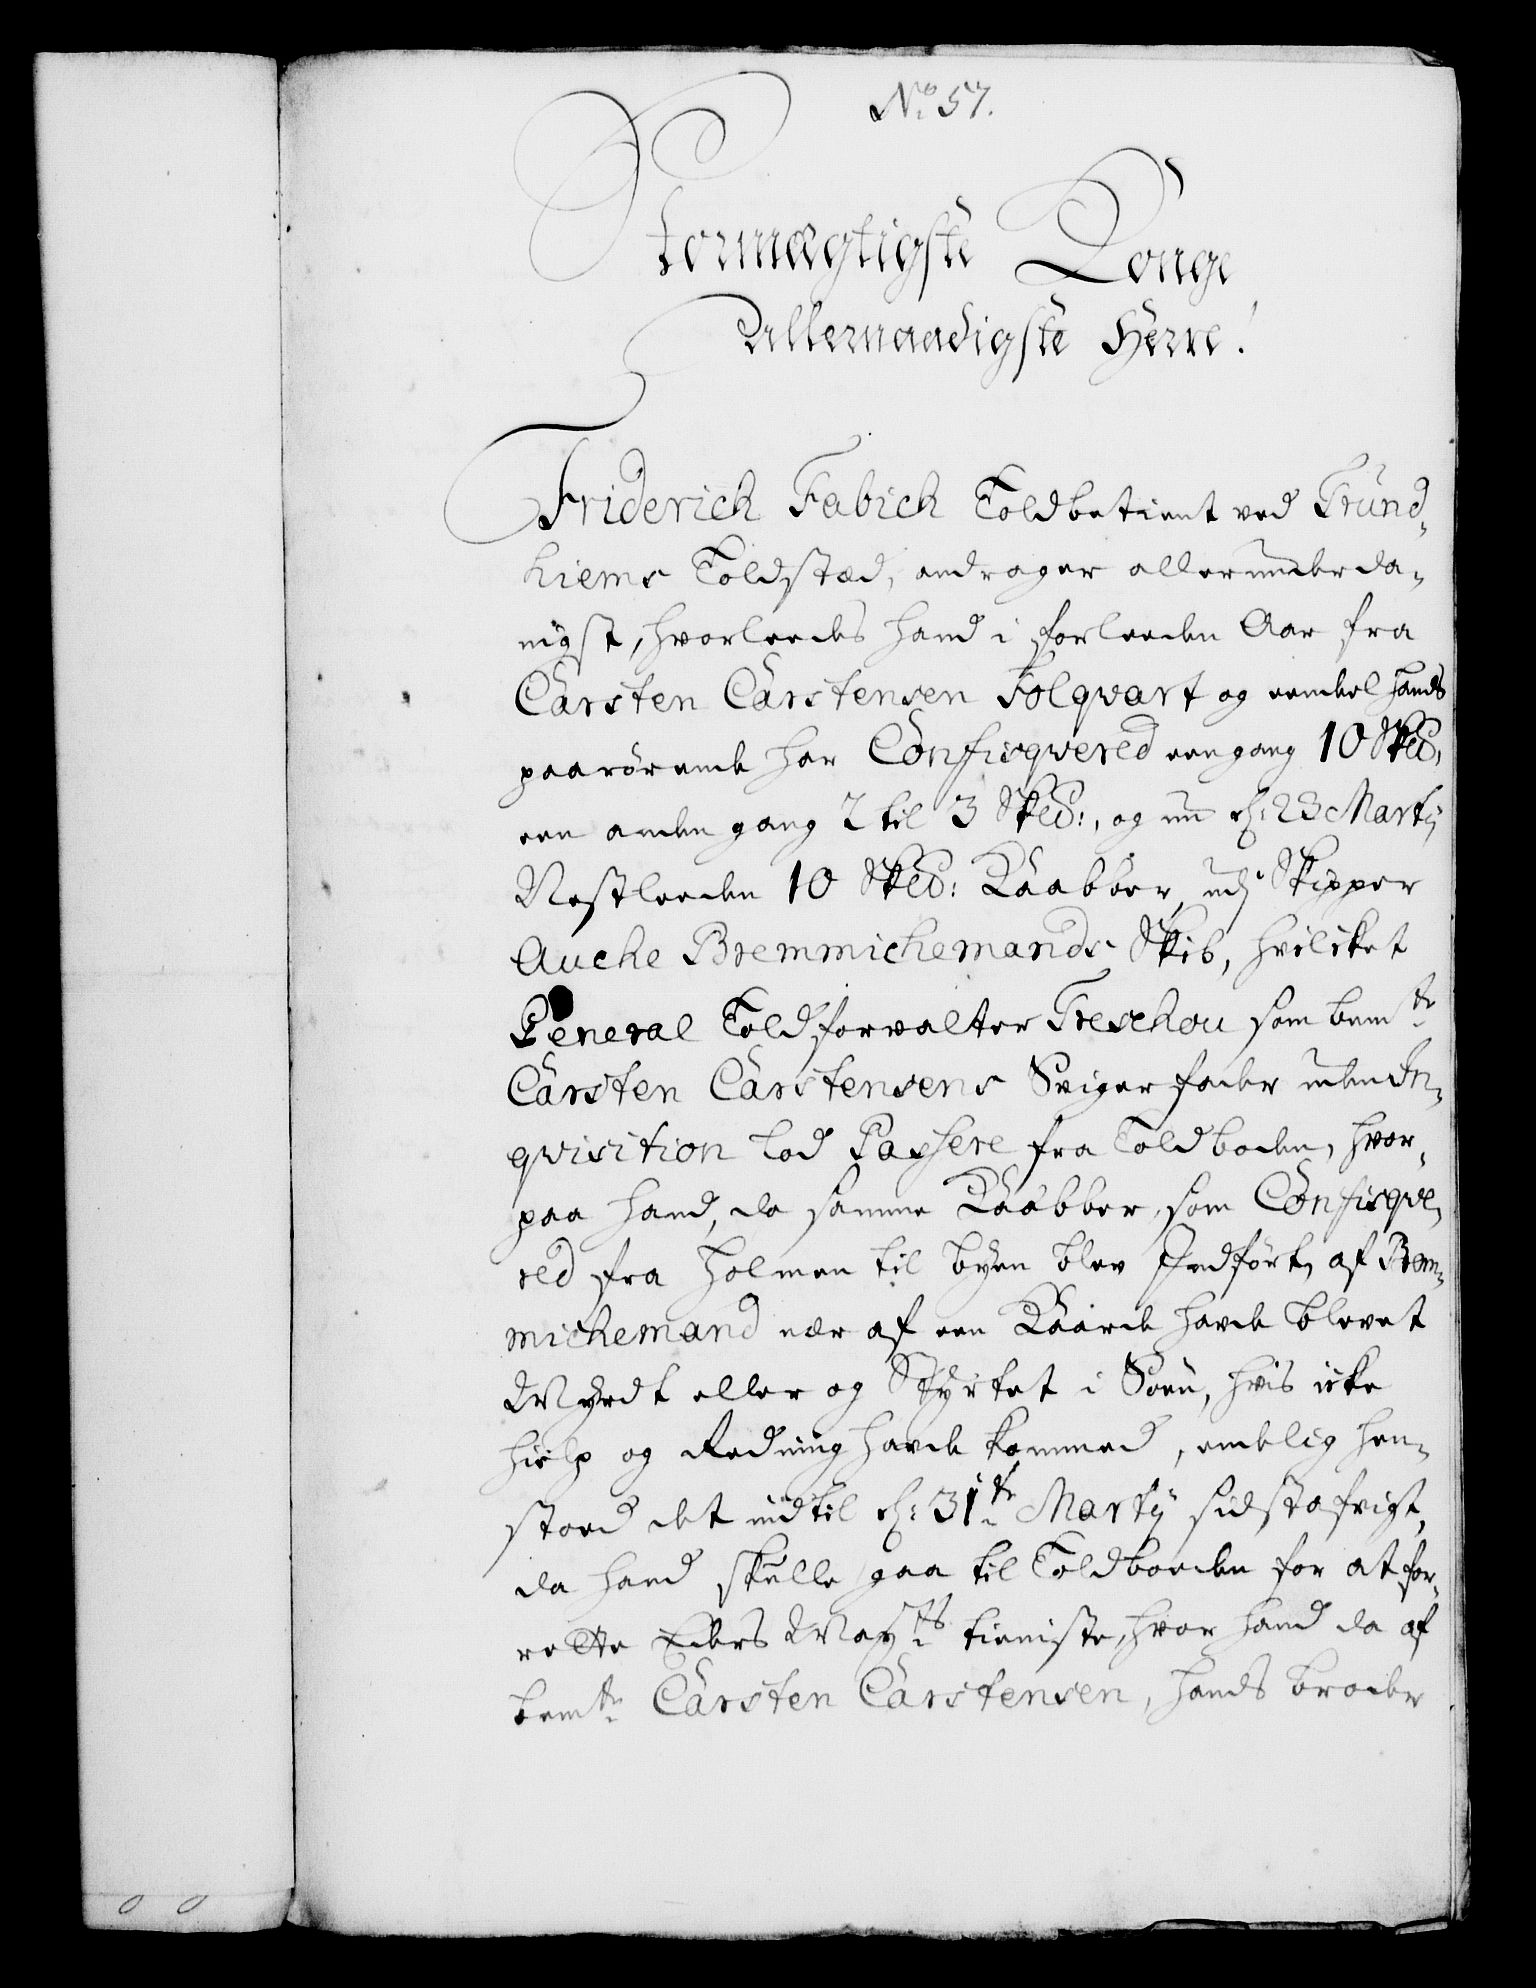 No 57.
Stormægtigste Konge
Allernaadigste Herre!
Friderich Fabich Toldbetient ved Trund-
hiems Toldstæd, andrager allerunderda-
nigst, hvorleedes hand i forleeden Aar fra
Carsten Carstensen Folqvart og eendeel hands
paarörende har Confisqvered een gang 10 Sk℔,
een anden gang 2 til 3 Sk℔:, og nu d: 23 Martij
Nestleeden 10 Sk℔: Kaabber, udj Skipper
Aucke Bremmichemands Skib, hvilcket
General Toldforvalter Treschou som bemte
Carsten Carstensens Sviger fader uden In-
qvisition lod Passere fra Toldboden, hvor-
paa hand, da samme Kaabber, som Confisqve-
red fra Holmen til byen blev Indfört, af Brem-
michemand nær af een Kaarde havde blevet
Myrdt eller og Styrtet i Söen, hvis icke
hielp og Redning havde kommed, endelig hen-
stoed det indtil d: 31te Martij sidstafvigt,
da hand skulle gaa til Toldboeden for at for-
rette Eders Mayts tieniste, hvor hand da af
bemte Carsten Carstensen, hands broder